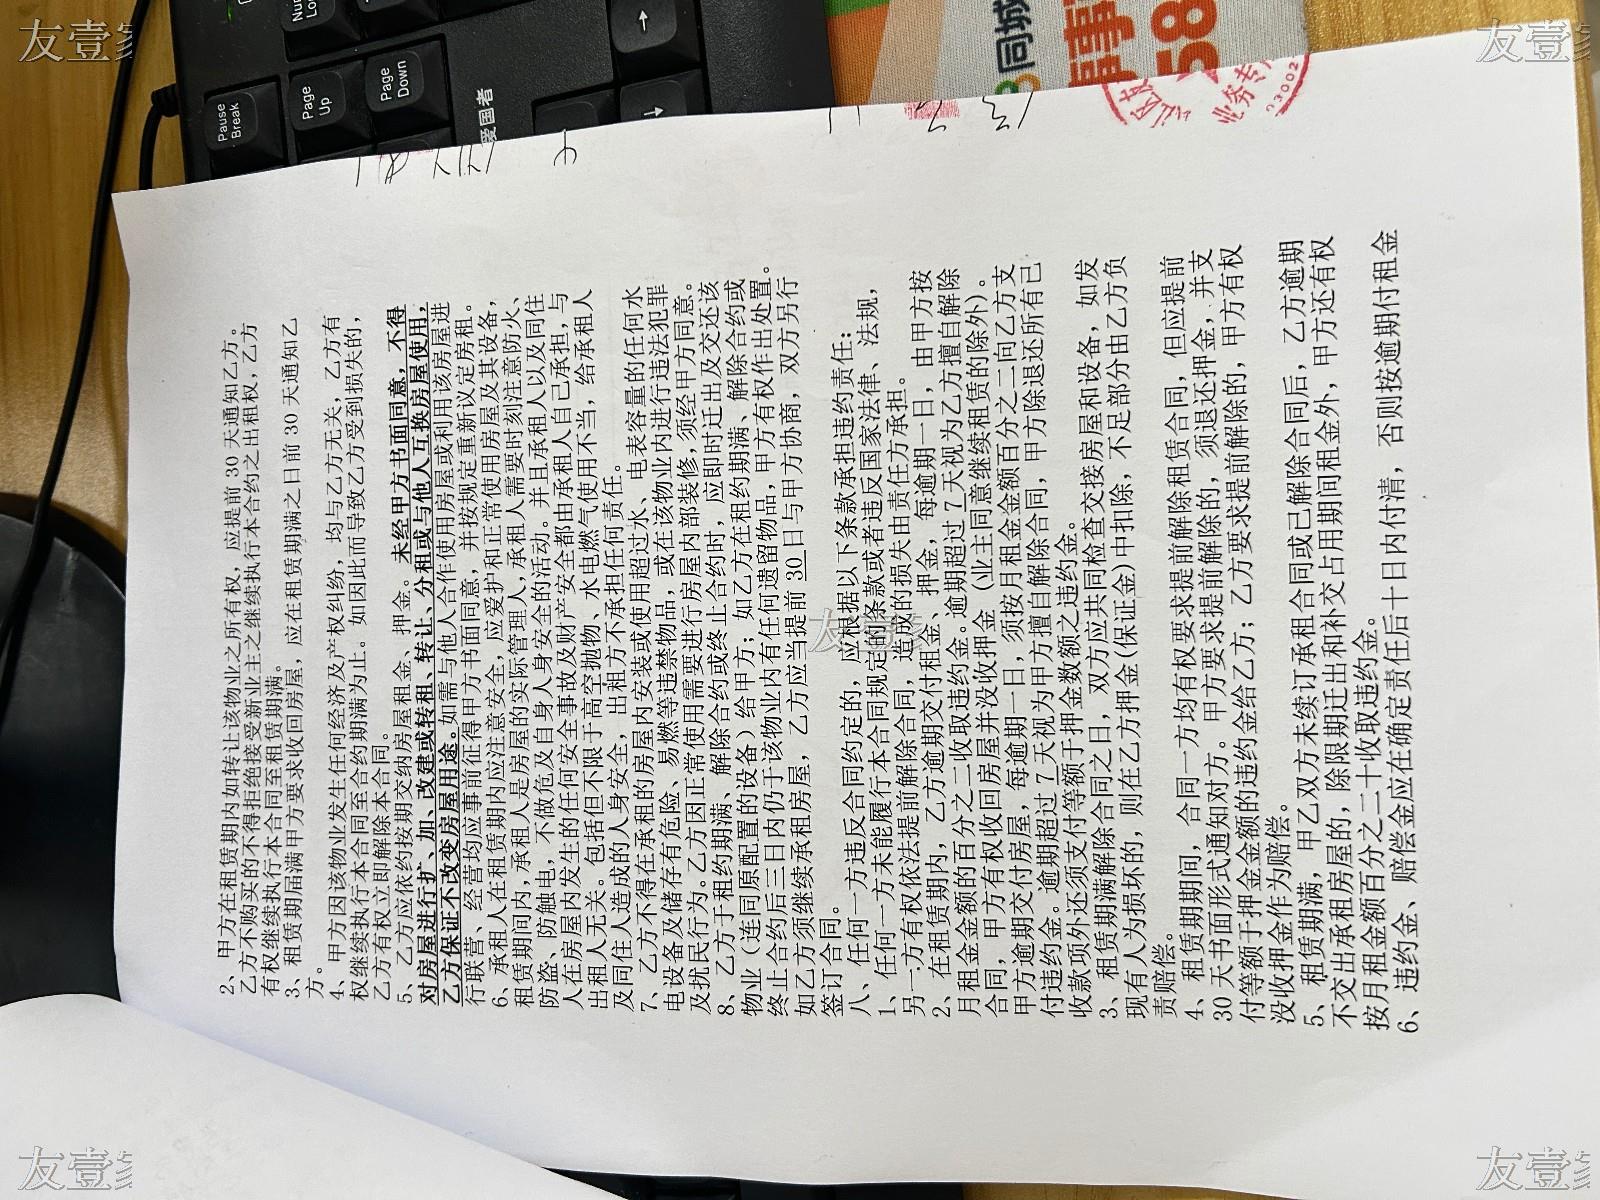 2、甲方在租赁期内如转让该物业之所有权，应提前 30 天通知乙方。
乙方不购买的不得拒绝接受新业主之继续执行本合约之出租权，乙方
有权继续执行本合同至租赁期满。
3、租赁期届满甲方要求收回房屋，应在租赁期满之日前 30 天通知乙
方。
4、甲方因该物业发生任何经济及产权纠纷，均与乙方无关，乙方有
权继续执行本合同至合约期满为止。如因此而导致乙方受到损失的，
乙方有权立即解除本合同。
5、乙方应依约按期交纳房屋租金、押金。未经甲方书面同意，不得
对房屋进行扩、加、改建或转租、转让、分租或与他人互换房屋使用，
乙方保证不改变房屋用途。如需与他人合作使用房屋或利用该房屋进
行联营、经营均应事前征得甲方书面同意，并按规定重新议定房租。
6、承租人在租赁期内应注意安全，应爱护和正常使用房屋及其设备，
租赁期间内,承租人是房屋的实际管理人,承租人需要时刻注意防火、
防盗、防触电，不做危及自身人身安全的活动。并且承租人以及同住
人在房屋内发生的任何安全事故及财产安全都由承租人自己承担,与
出租人无关。包括但不限于高空抛物、水电燃气使用不当，给承租人
及同住人造成的人身安全，出租方不承担任何责任。
7、乙方不得在承租的房屋内安装或使用超过水、电表容量的任何水
电设备及储存有危险、易燃等违禁物品，或在该物业内进行违法犯罪
及扰民行为。乙方因正常使用需要进行房屋内部装修，须经甲方同意。
8、乙方于租约期满、解除合约或终止合约时，应即时迁出及交还该
物业（连同原配置的设备）给甲方；如乙方在租约期满、解除合约或
终止合约后三日内仍于该物业内有任何遗留物品，甲方有权作出处置。
如乙方须继续承租房屋，乙方应当提前 30 日与甲方协商，双方另行
签订合同。
八、任何一方违反合同约定的，应根据以下条款承担违约责任：
1、任何一方未能履行本合同规定的条款或者违反国家法律、法规，
另一方有权依法提前解除合同，造成的损失由责任方承担。
2、在租赁期内，乙方逾期交付租金、押金，每逾期一日，由甲方按
月租金金额的百分之二收取违约金。逾期超过 7 天视为乙方擅自解除
合同，甲方有权收回房屋并没收押金（业主同意继续租赁的除外）。
甲方逾期交付房屋，每逾期一日，须按月租金金额百分之二向乙方支
付违约金。逾期超过 7 天视为甲方擅自解除合同，甲方除退还所有已
收款项外还须支付等额于押金数额之违约金。
3、租赁期满解除合同之日，双方应共同检查交接房屋和设备，如发
现有人为损坏的，则在乙方押金(保证金)中扣除，不足部分由乙方负
责赔偿。
4、租赁期期间，合同一方均有权要求提前解除租赁合同，但应提前
30 天书面形式通知对方。甲方要求提前解除的，须退还押金，并支
付等额于押金金额的违约金给乙方；乙方要求提前解除的，甲方有权
没收押金作为赔偿。
5、租赁期满，甲乙双方未续订承租合同或已解除合同后，乙方逾期
不交出承租房屋的，除限期迁出和补交占用期间租金外，甲方还有权
按月租金额百分之二十收取违约金。
6、违约金、赔偿金应在确定责任后十日内付清，否则按逾期付租金
Pause
Break
Page
Up
Page
Down
爱国者
同城
58
业务专
03002
友壹
友壹
友壹
友壹
友壹